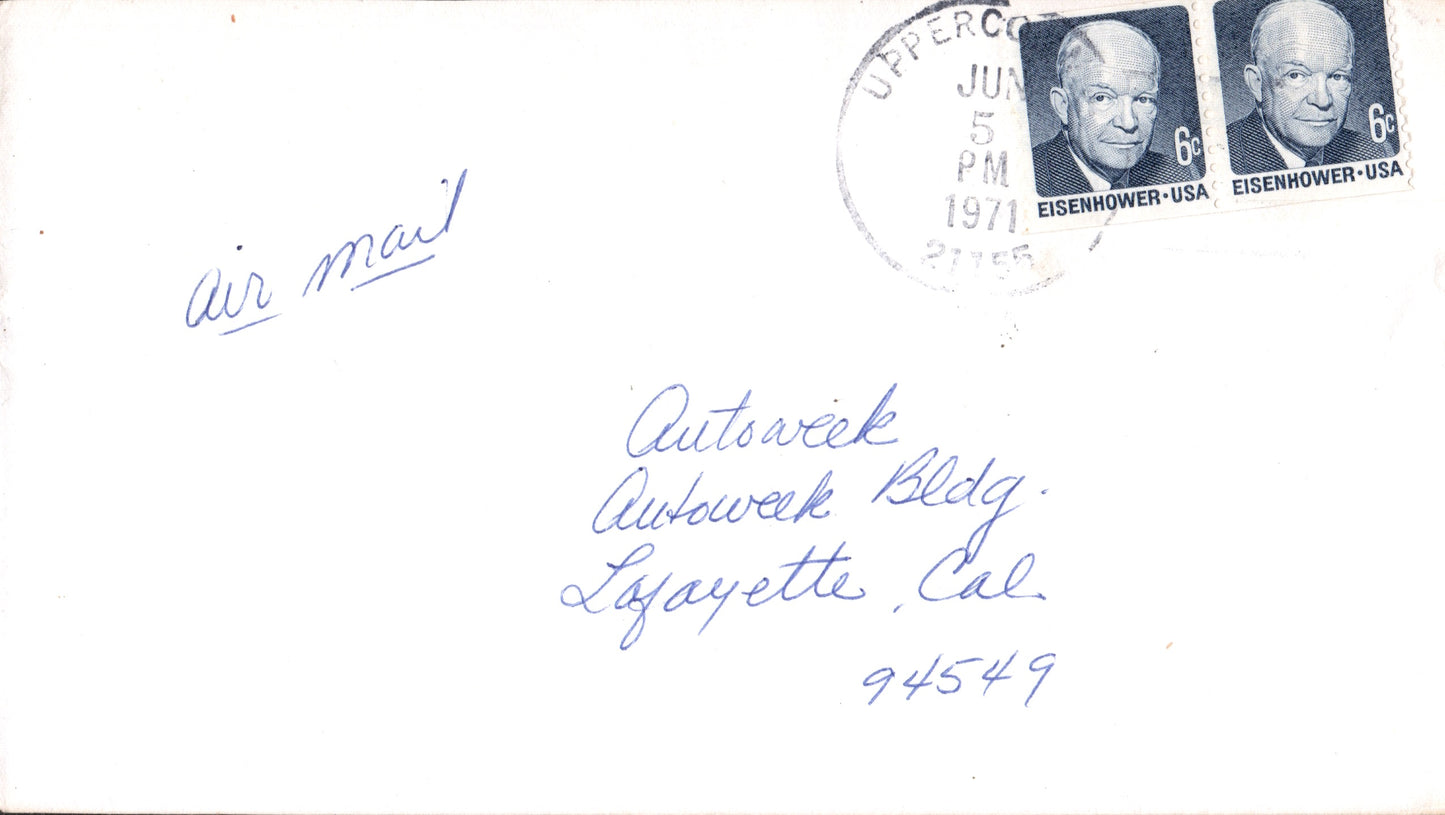 JUN
5
PM
1971
6c
EISENHOWER·USA
6c
EISENHOWER·USA
air mail
Autoweek
Autoweek Bldg.
Lafayette, Cal.
94549